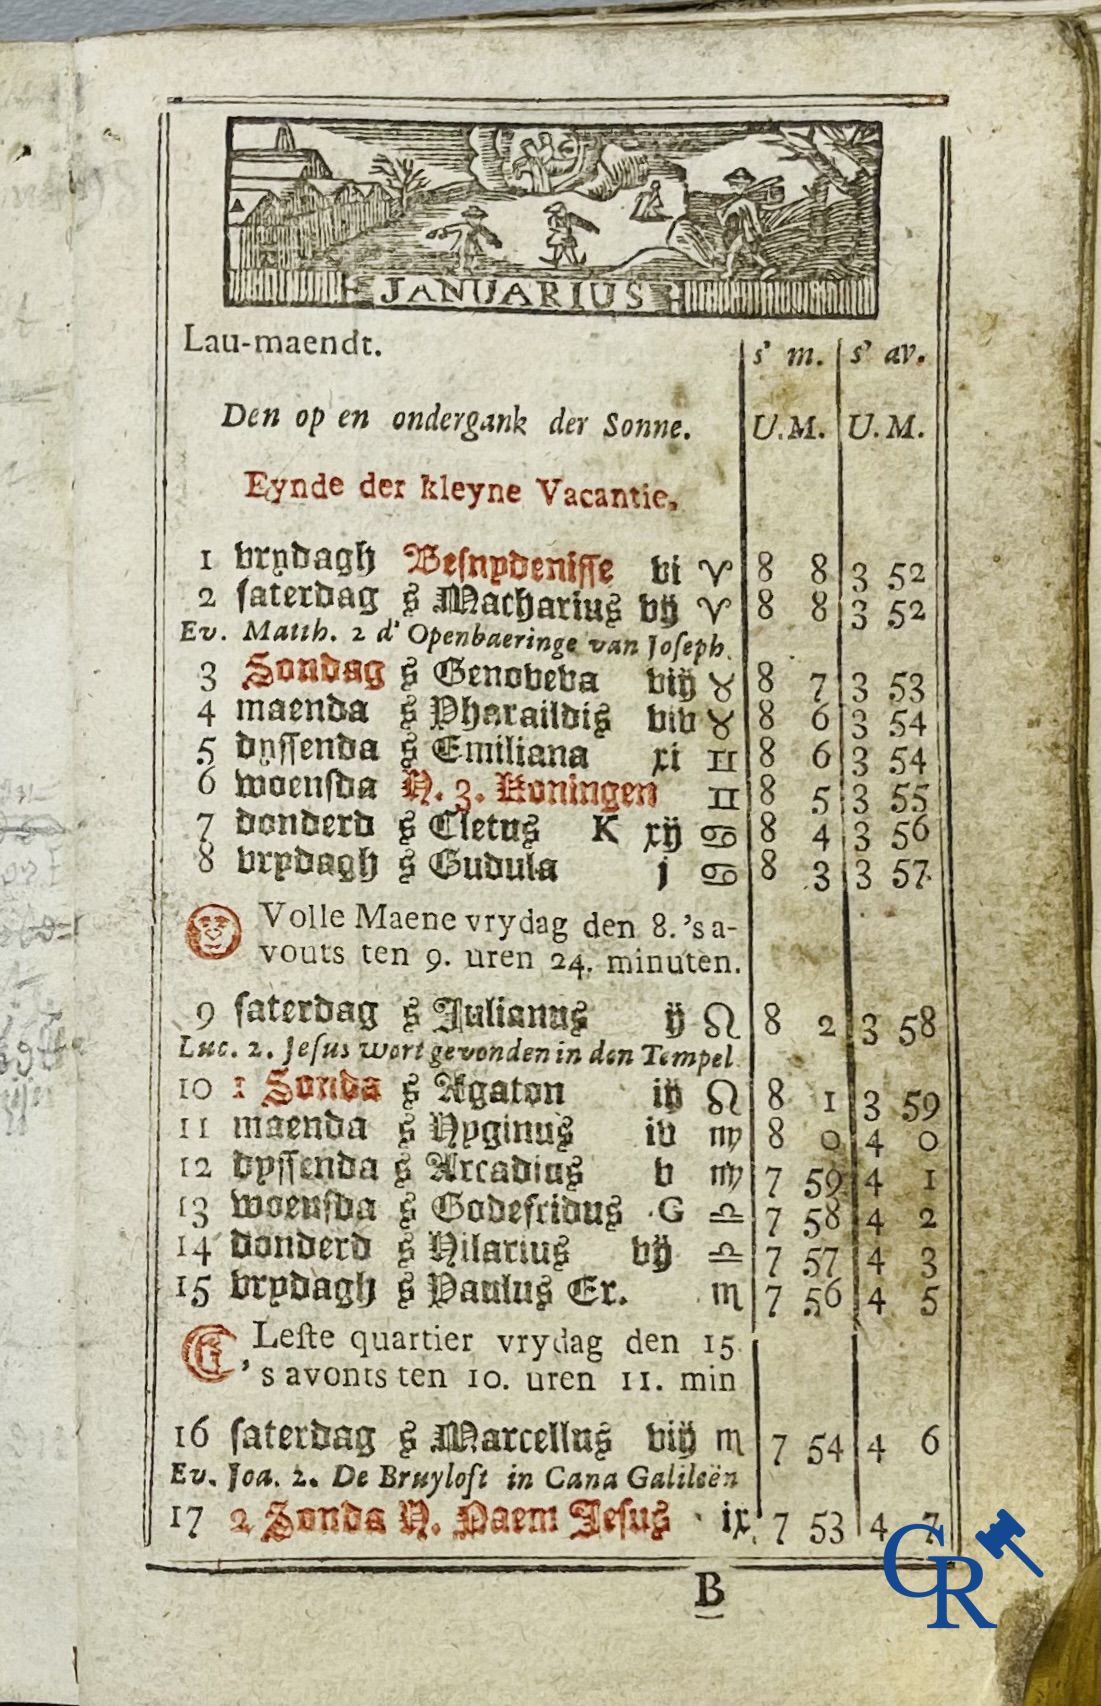 JANUARIUS
Lau-maendt. s' m. s' av.
Den op en ondergank der Sonne. U.M. U.M.
Eynde der kleyne Vacantie,
1 vrydagh Besnydenisse vi ♈ 8 8 3 52
2 saterdag s Macharius vij ♈ 8 8 3 52
Ev. Matth. 2 d' Openbaeringe van Joseph.
3 Sondag s Genoveva viij ♉ 8 7 3 53
4 maenda s Pharaildis viv ♉ 8 6 3 54
5 dyssenda s Emiliana xi ♊ 8 6 3 54
6 woensda H. 3. Koningen ♊ 8 5 3 55
7 donderd s Cletus K xij ♋ 8 4 3 56
8 vrydagh s Gudula j ♋ 8 3 3 57
Volle Maene vrydag den 8. 's a-
vouts ten 9. uren 24. minuten.
9 saterdag s Julianus ij ♌ 8 2 3 58
Luc. 2. Jesus wort gevonden in den Tempel
10 1 Sonda s Agaton iij ♌ 8 1 3 59
11 maenda s Hyginus iv ♍ 8 0 4 0
12 dyssenda s Arcadius v ♍ 7 59 4 1
13 woensda s Godefridus G ♎ 7 58 4 2
14 donderd s Hilarius vij ♎ 7 57 4 3
15 vrydagh s Paulus Er. ♏ 7 56 4 5
Leste quartier vrydag den 15
's avonts ten 10. uren 11. min
16 saterdag s Marcellus viij ♏ 7 54 4 6
Ev. Joa. 2. De Bruyloft in Cana Galileën
17 2 Sonda H. Naem Jesus ix 7 53 4 7
B
CR